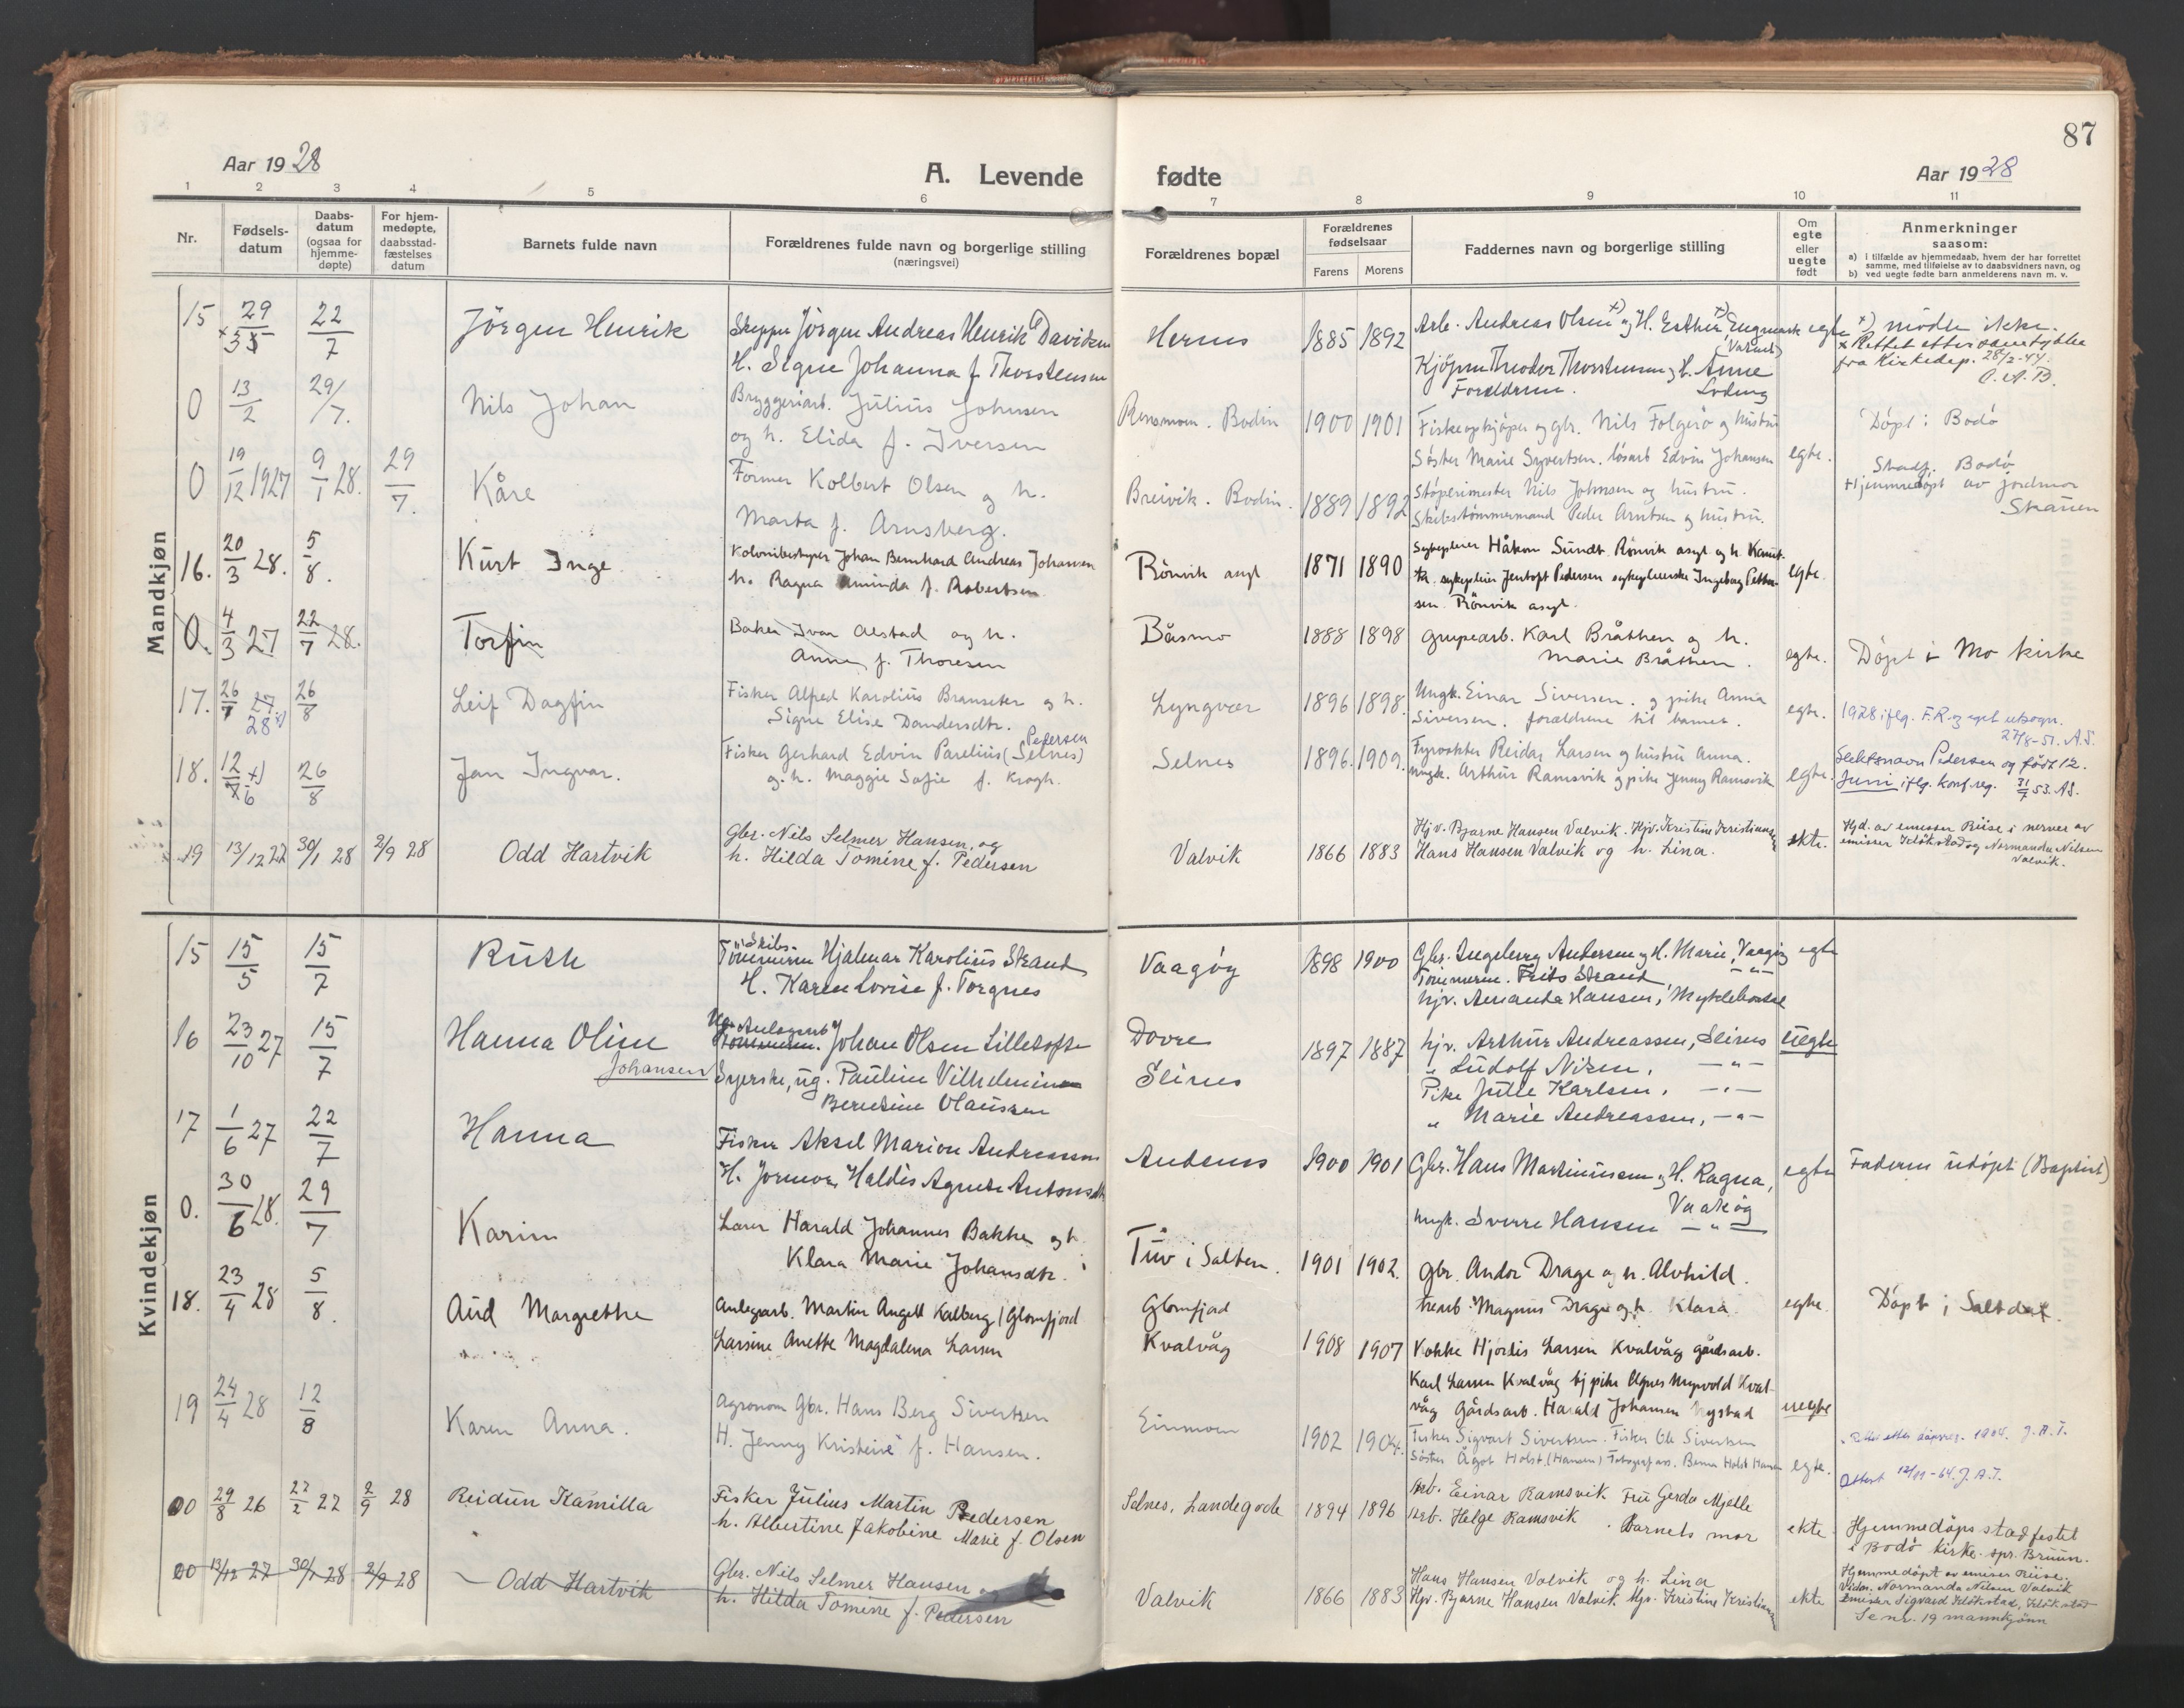 87
Aar 1928
A. Levende fødte
Aar 1928
1 2 3 4 5 6 7 8 9 10 11
Nr.
Fødsels-
datum
Daabs-
datum
(ogsaa for
hjemme-
døpte)
For hjem-
medøpte,
daabsstad-
fæstelses
datum
Barnets fulde navn
Forældrenes fulde navn og borgerlige stilling
(næringsvei)
Forældrenes bopæl
Forældrenes
fødselsaar
Farens Morens
Faddernes navn og borgerlige stilling
Om
egte
eller
uegte
født
Anmerkninger
saasom:
a) i tilfælde av hjemmedaab, hvem der har forrettet
samme, med tilføielse av to daabsvidners navn, og
b) ved uegte fødte barn anmelderens navn m. v.
Mandkjøn
15 29/5 22/7 Jörgen Henrik
Skipper Jörgen Andreas Henrik Davidsen
H. Signe Johanna f. Thorstensen
Hernes 1885 1892
Arb. Andreas Olsen +) og H. Esther +) Engmark
Kjöpm Theodor Thorstensen og H. Anne
Forældrene. Löding
egte
+) mödte ikke.
x Rettet etter samtykke
fra Kirkedep. 28/2-44.
O.A.B.
0 13/2 29/7. Nils Johan
Bryggeriarb. Julius Johnsen
og h. Elida f. Iversen
Rensmoen. Bodin 1900 1901
Fiskeopkjöper og gbr. Nils Folgerö og hustru
Söster Marie Syvertsen. lösarb Edvin Johansen
egte.
Döpt i Bodö
0 19/12 1927 9/1 28. 29/7. Kåre
Former Kolbert Olsen og h.
Marta f. Arnsberg.
Breivik. Bodin. 1889 1892
Stöperimester Nils Johnsen og hustru.
Skibstömmermand Peder Arntsen og hustru.
Stadf. Bodö
Hjemmedöpt av jordmor
16. 20/3 28. 5/8. Kurt Inge
Kolonibestyrer Johan Bernhard Andreas Johansen
h. Ragna Aminda f. Robertsen
Rönvik asyl 1871 1890
Sykepleier Håkon Sundt. Rönvik asyl og h.
sykepleier Jentoft Pedersen sykepleierske Ingeborg Petter-
sen. Rönvik asyl.
egte.
0. 4/3 27 22/7 28. Torfin
Baker Ivar Alstad og h.
Anna, f. Thoresen
Båsmo 1888 1898
Grupearb. Karl Bråthen og h.
Marie Bråthen.
egte. Döpt i Mo kirke
17. 26/7 27 28 x) 26/8 Leif Dagfin
Fisker Alfred Karolius Branseter og h.
Signe Elise Dandersdtr.
Lyngvær 1896 1898.
Ungk. Einar Siversen. og pike Anna
Siversen. forældrene til barnet.
egte. 1928 iflg. F.R. og eget utsagn.
27/8-51. A.S.
18. 12/7 +) 6 26/8 Jan Ingvar.
Pedersen
Fisker Gerhard Edvin Parelius (Selnes)
og h. Maggie Sofie f. Krogh.
Selnes 1896. 1909.
Fyrvokter Reidar Larsen og hustru Anna.
ungk. Arthur Ramsvik og pike Jenny Ramsvik
egte.
Slektsnavn Pedersen og födt 12.
Juni iflg. konf.reg. 31/7 53. A.S.
19 13/12 27 30/1 28 2/9 28 Odd Hartvik
Gbr. Nils Selmer Hansen, og
h. Hilda Tomine f. Pedersen
Valvik 1866 1883
Hjv. Bjarne Hansen Valvik. Hjv. Kristine Kristiansen
Hans Hansen Valvik og h. Lina.
ekte.
Hjd. av emissær Riise i nerver av
emissær Klökstad og Normanda Nilsen
Valvik.
Kvindekjøn
15 15/5 15/7 Ruth
Skibs-
Tömmerm Hjalmar Karolius Strand
H. Karen Lovise f. Torgnes
Vaagöy 1898 1900
Gbr. Ingeborg Andersen og H. Marie, Vaagöy
Tömmerm. Frits Strand, — " —
hjv. Amanda Hansen, Myklebostad
egte
16 23/10 27 15/7 Hanna Oline
Johansen
Anlegsarb
Tömmerm. Johan Olsen Lilletofte
Syerske, ug. Pauline Vilhelmine
Berntine Olaussen
Dovre
Seines
1897 1887
hjv. Arthur Andreassen, Seines
" Ludolf Nizen, — " —
Pike Julie Karlsen, — " —
" Marie Andreassen, — " —
uegte
17 1/6 27 22/7 Hanna
Fisker Aksel Marion Andreassen
H. Haldis Agnete Antonsdtr
Andenes 1900 1901
Gbr. Hans Martinussen og H. Ragna,
Vaagöy
Ungk. Sverre Hansen — " —
egte Faderen udöpt (Baptist)
0. 30/6 28. 29/7 Karin
Lærer Harald Johannes Bakke og h.
Klara Marie Johansdtr.
Tuv i Salten. 1901 1902.
gbr. Andor Drage og h. Alvhild.
Magnus Drage og h. Klara.
egte. Döpt i Saltdal.
18. 23/4 28 5/8. Aud Margrethe
Anlegsarb. Martin Angell Kalberg, Glomfjord
Larsine Anette Magdalena Larsen
Glomfjord
Kvalvåg
1908 1907
Kokke Hjordis Larsen Kvalvåg gårdsarb.
Karl Larsen Kvalvåg tj pike Agnes Myrvold Kval-
våg Gårdsarb. Harald Johansen Nystad
uegte
19 24/4 28 12/8 Karen Anna.
Agronom Gbr. Hans Berg Sivertsen
H. Jenny Kristine f. Hansen.
Einmoen 1902 1904.
Fisker Sigvart Sivertsen. Fisker Ole Sivertsen
Söster Ågot Holst. (Hansen) Fotograf ass. Berner Holst Hansen
egte.
Rettet etter dåpsreg. 1904. J.A.T.
Attest 12/11-64. J.A.T.
00 29/8 26 22/2 27 2/9 28 Reidun Kamilla
Fisker Julius Martin Pedersen
h. Albertine Jakobine Marie f. Olsen
Selnes, Landegode 1894 1896
Arb. Einar Ramsvik Fru Gerda Mjelle
Arb. Helge Ramsvik. Barnets mor
ekte
Hjemmedöps stadfestet
i Bodö kirke. spr. Bruun.
00 13/12 27 30/1 28 2/9 28 Odd Hartvik
Gbr. Nils Selmer Hansen og
h. Hilda Tomine f. Pedersen
Valvik 1866 1883
Hans Hansen Valvik og h. Lina
Hjv. Bjarne Hansen Valvik Hjv. Kristine Kristiansen
ekte
Hjemmedöpt av emissær Riise.
Vidn. Normanda Nilsen Valvik
Emissær Sigvard Klökstad, Klökstad
Se nr. 19 mannkjönn